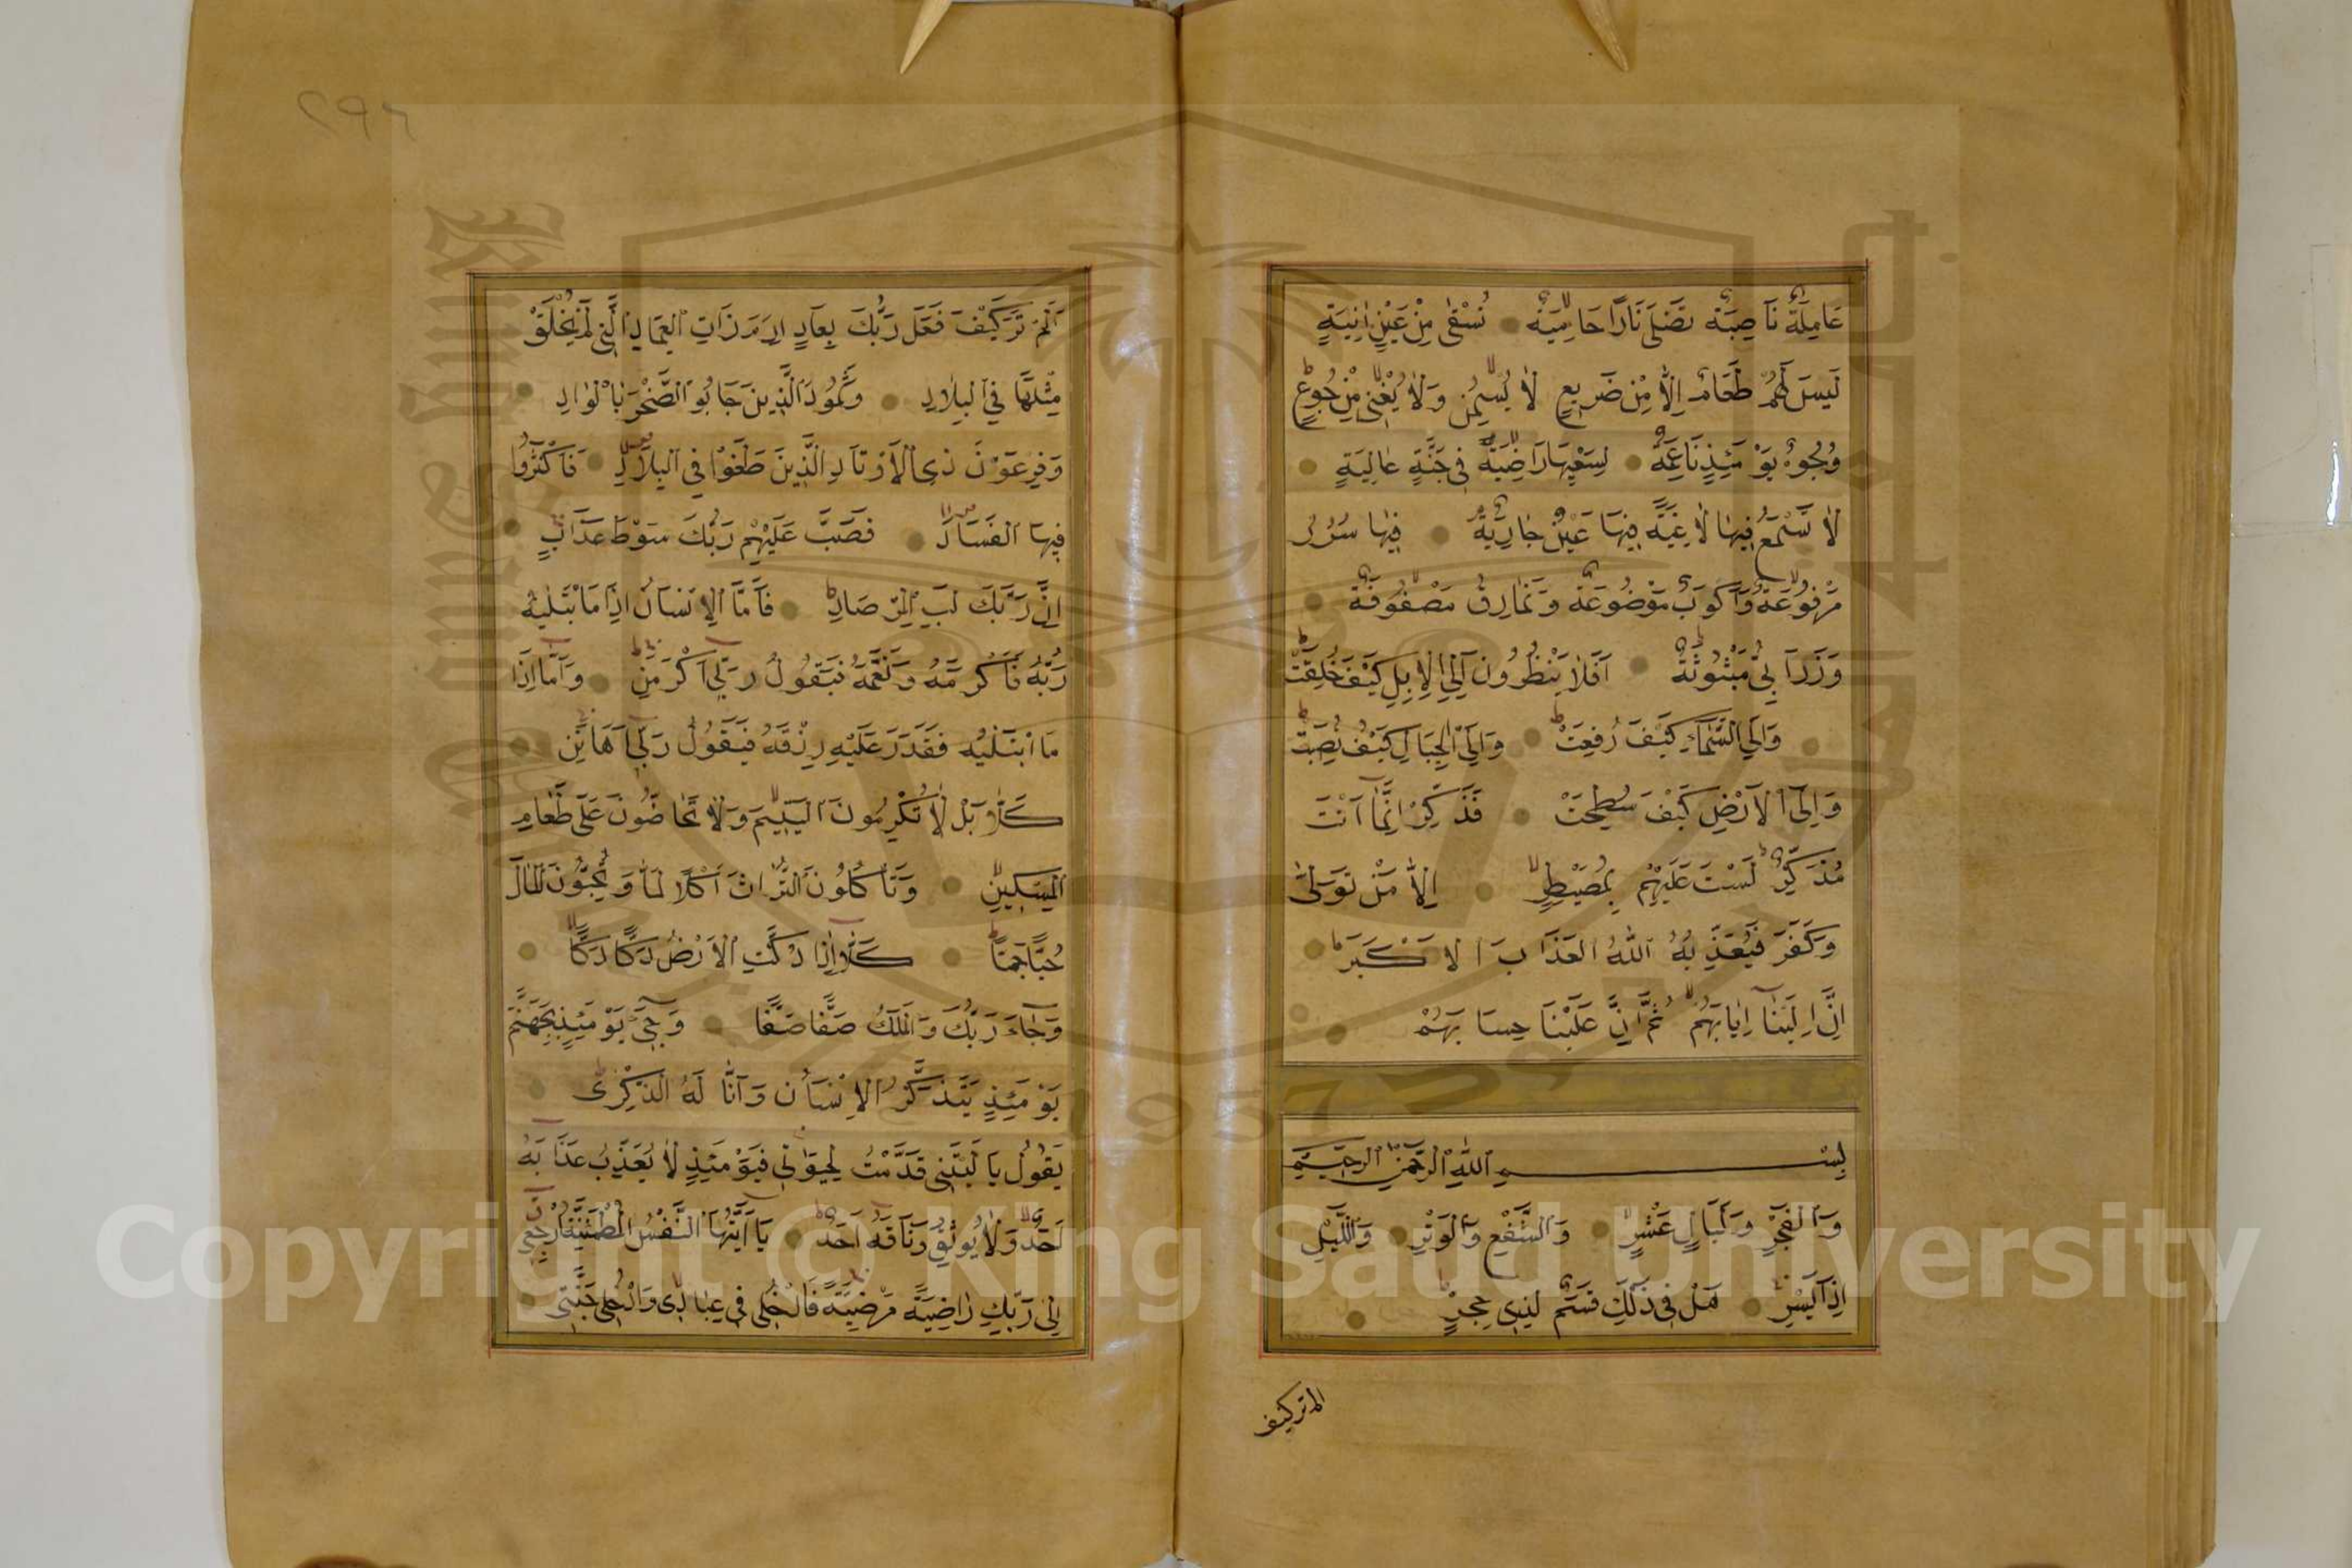 عَامِلَةٌ نَاصِبَةٌ تَصْلَى نَارًا حَامِيَةً تُسْقٰى مِنْ عَيْنٍ اٰنِيَةٍ
لَيْسَ لَهُمْ طَعَامٌ اِلَّا مِنْ ضَرِيعٍ لَا يُسْمِنُ وَلَا يُغْنِى مِنْ جُوعٍ
وُجُوهٌ يَوْمَئِذٍ نَاعِمَةٌ لِسَعْيِهَا رَاضِيَةٌ فِى جَنَّةٍ عَالِيَةٍ
لَا تَسْمَعُ فِيهَا لَاغِيَةً فِيهَا عَيْنٌ جَارِيَةٌ فِيهَا سُرُرٌ
مَرْفُوعَةٌ وَاَكْوَابٌ مَوْضُوعَةٌ وَنَمَارِقُ مَصْفُوفَةٌ
وَزَرَابِىُّ مَبْثُوثَةٌ اَفَلَا يَنْظُرُونَ اِلَى الْاِبِلِ كَيْفَ خُلِقَتْ
وَاِلَى السَّمَاءِ كَيْفَ رُفِعَتْ وَاِلَى الْجِبَالِ كَيْفَ نُصِبَتْ
وَاِلَى الْاَرْضِ كَيْفَ سُطِحَتْ فَذَكِّرْ اِنَّمَا اَنْتَ
مُذَكِّرٌ لَسْتَ عَلَيْهِمْ بِمُصَيْطِرٍ اِلَّا مَنْ تَوَلّٰى
وَكَفَرَ فَيُعَذِّبُهُ اللّٰهُ الْعَذَابَ الْاَكْبَرَ
اِنَّ اِلَيْنَا اِيَابَهُمْ ثُمَّ اِنَّ عَلَيْنَا حِسَابَهُمْ
بِسْمِ اللّٰهِ الرَّحْمٰنِ الرَّحِيمِ
وَالْفَجْرِ وَلَيَالٍ عَشْرٍ وَالشَّفْعِ وَالْوَتْرِ وَاللَّيْلِ
اِذَا يَسْرِ هَلْ فِى ذٰلِكَ قَسَمٌ لِذِى حِجْرٍ
الم تر كيف
٢٩٦
اَلَمْ تَرَ كَيْفَ فَعَلَ رَبُّكَ بِعَادٍ اِرَمَ ذَاتِ الْعِمَادِ الَّتِى لَمْ يُخْلَقْ
مِثْلُهَا فِى الْبِلَادِ وَثَمُودَ الَّذِينَ جَابُوا الصَّخْرَ بِالْوَادِ
وَفِرْعَوْنَ ذِى الْاَوْتَادِ الَّذِينَ طَغَوْا فِى الْبِلَادِ فَاَكْثَرُوا
فِيهَا الْفَسَادَ فَصَبَّ عَلَيْهِمْ رَبُّكَ سَوْطَ عَذَابٍ
اِنَّ رَبَّكَ لَبِالْمِرْصَادِ فَاَمَّا الْاِنْسَانُ اِذَا مَا ابْتَلٰيهُ
رَبُّهُ فَاَكْرَمَهُ وَنَعَّمَهُ فَيَقُولُ رَبِّى اَكْرَمَنِ وَاَمَّا اِذَا
مَا ابْتَلٰيهُ فَقَدَرَ عَلَيْهِ رِزْقَهُ فَيَقُولُ رَبِّى اَهَانَنِ
كَلَّا بَلْ لَا تُكْرِمُونَ الْيَتِيمَ وَلَا تَحَاضُّونَ عَلَى طَعَامِ
الْمِسْكِينِ وَتَاْكُلُونَ التُّرَاثَ اَكْلًا لَمًّا وَتُحِبُّونَ الْمَالَ
حُبًّا جَمًّا كَلَّا اِذَا دُكَّتِ الْاَرْضُ دَكًّا دَكًّا
وَجَاءَ رَبُّكَ وَالْمَلَكُ صَفًّا صَفًّا وَجِىءَ يَوْمَئِذٍ بِجَهَنَّمَ
يَوْمَئِذٍ يَتَذَكَّرُ الْاِنْسَانُ وَاَنَّى لَهُ الذِّكْرٰى
يَقُولُ يَا لَيْتَنِى قَدَّمْتُ لِحَيَوٰتِى فَيَوْمَئِذٍ لَا يُعَذِّبُ عَذَابَهُ
اَحَدٌ وَلَا يُوثِقُ وَثَاقَهُ اَحَدٌ يَا اَيَّتُهَا النَّفْسُ الْمُطْمَئِنَّةُ ارْجِعِى
اِلٰى رَبِّكِ رَاضِيَةً مَرْضِيَّةً فَادْخُلِى فِى عِبَادِى وَادْخُلِى جَنَّتِى
Copyright © King Saud University
King Saud University
1957